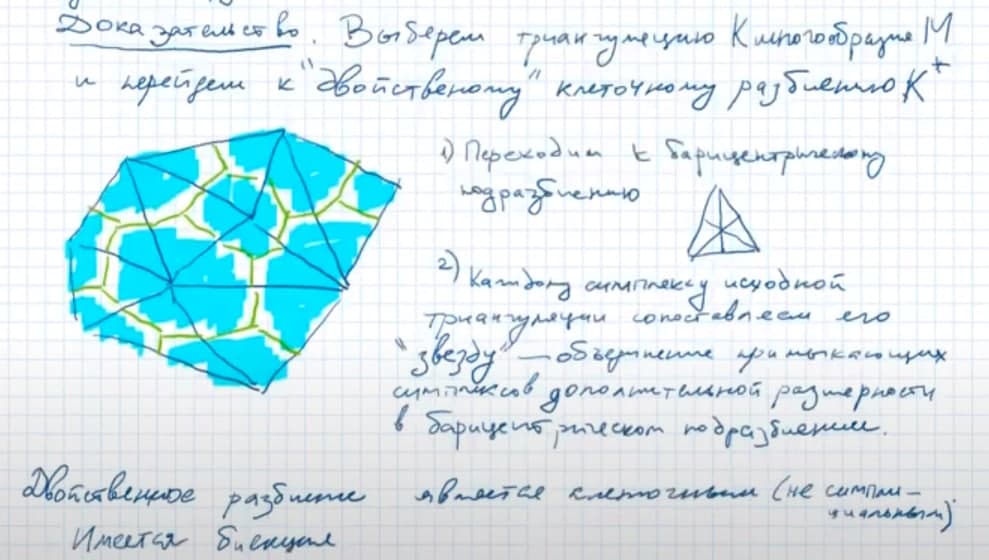 Доказательство. Выберем триангуляцию K многообразия M
и перейдем к "двойственому" клеточному разбиению K*
1) Переходим к барицентрическому
подразбиению
2) Каждому симплексу исходной
триангуляции сопоставляем его
"звезду" — объединение примыкающих
симплексов дополнительной размерности
в барицентрическом подразбиении.
Двойственное разбиение является клеточным (не симпли-
циальным).
Имеется биекция